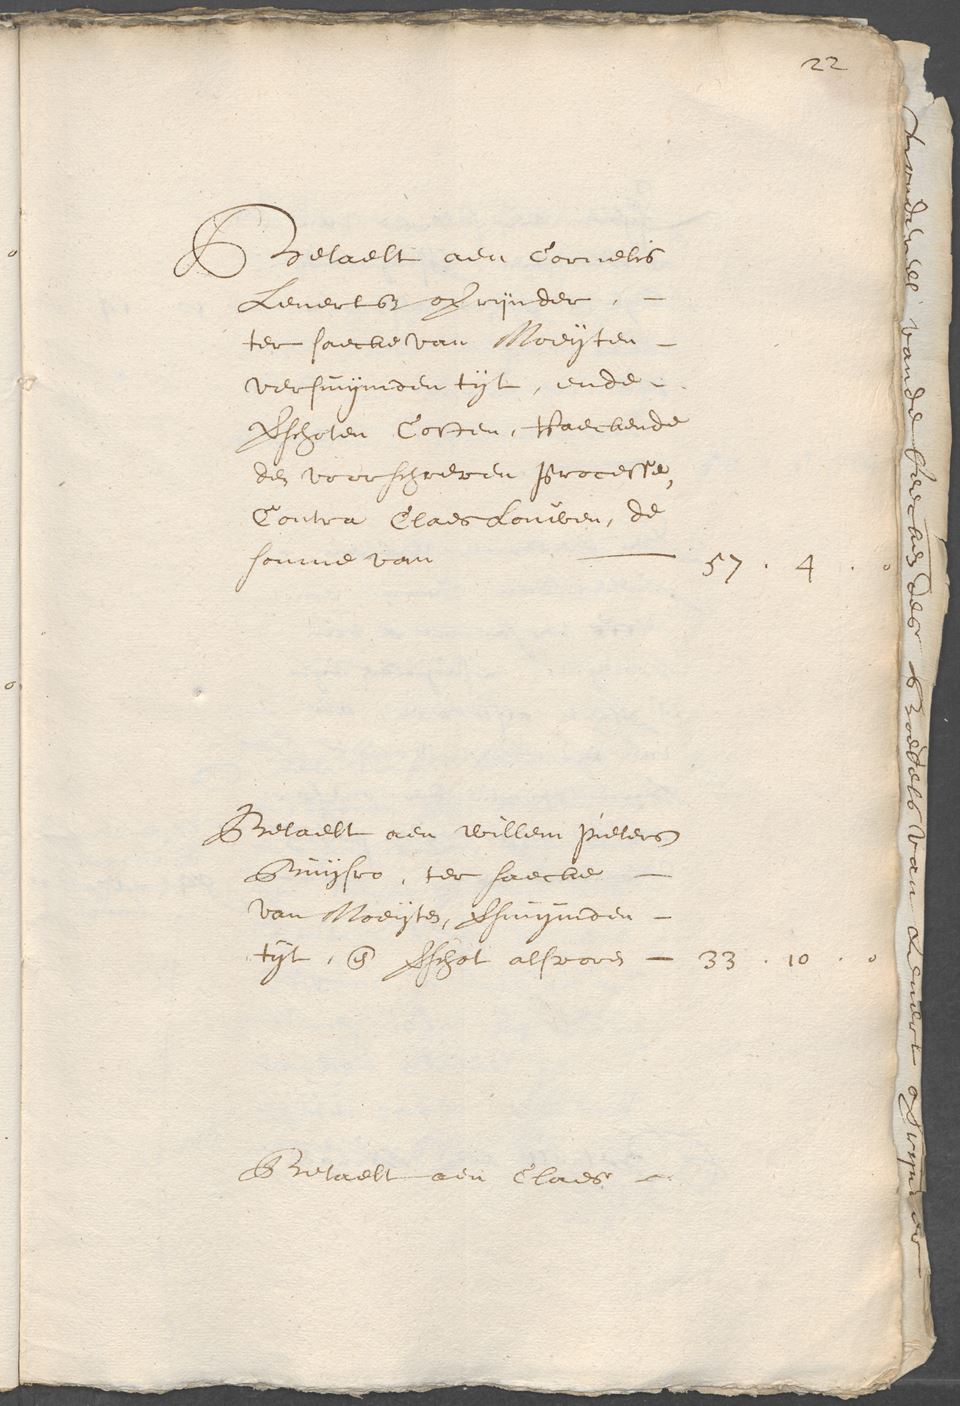 22
Betaelt aen Cornelis
Lenertsz oprijnder, -
ter saecke van Moeijten -
versuijmden tijt, ende -
verschoten Costen, Raeckende
de voorschreven Processe,
Contra Claes Louwen, de
somme van — 57 . 4 . 0
Betaelt aen Willem Pieters
Buijsro, ter saecke -
van Moeijte, versuijmden -
tijt, en verschot als vooren — 33 . 10 . 0
Betaelt aen Claes -
vande saecke des boedels van Lenert oprijnder